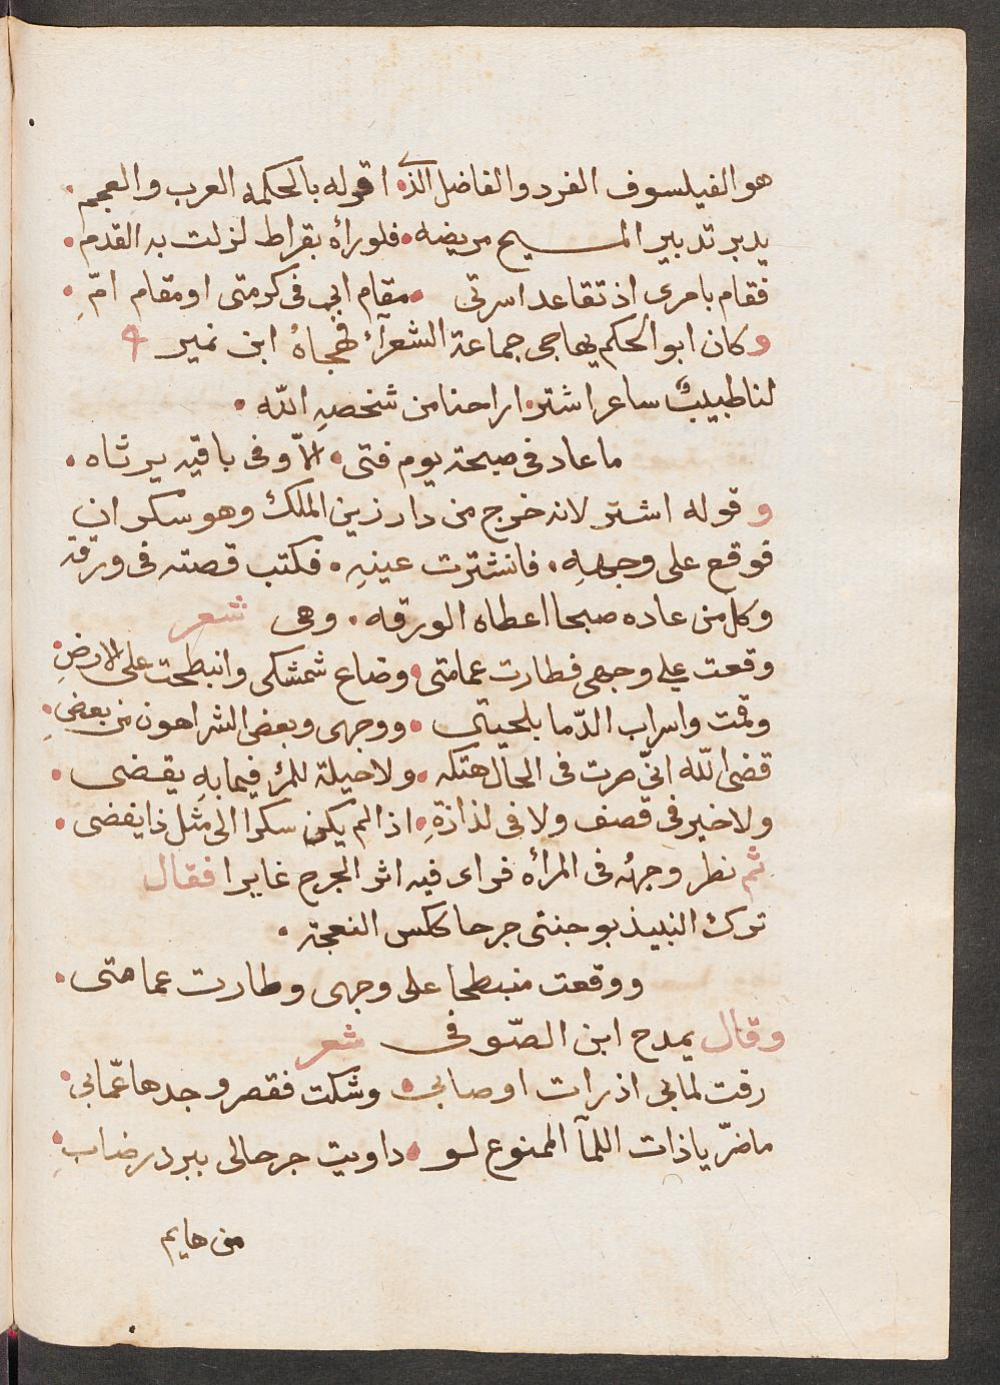 هو الفيلسوف الفرد والفاضل الذى اقوله بالحكمه العرب والعجم
يدبر تدبير المسيح مريضه فلو رأه بقراط لزلت به القدم
فقام بامرى اذ تقاعد اسرتى مقام ابى فى كرمتى او مقام امّى
وكان ابو الحكم يهاجى جماعة الشعرآء فهجاهُ ابن نمير
لنا طبيبٌ ساعر اشتر اراحنا من شخصهِ الله
ما عاد فى صبحة يوم فتى الّا وفى باقيه يرثاه
وقوله اشتر لانه خرج من دار زين الملك وهو سكران
فوقع على وجههِ فانشترت عينهِ فكتب قصته فى ورقة
وكل من عاده صبحا اعطاه الورقه وهى شعر
وقعت على وجهى فطارت عمامتى وضاع شمشكى وانبطحت على الارضِ
وقمت واسراب الدّما بلحيتى ووجهى وبعض الشر اهون من بعضِ
قضى الله انّى صرت فى الحال هتكه ولا حيلة للمرٔ فيما بهِ يقضى
ولا خير فى قصف ولا فى لذاذةٍ اذا لم يكن سكرا الى مثل ذا يفضى
ثم نظر وجهُه فى المرأه فراى فيه اثر الجرح غايرا فقال
ترك النبيذ بوجنتى جرحا ككس النعجة
ووقعت منبطحا على وجهى وطارت عمامتى
وقال يمدح ابن الصّوفى شعر
رقت لما بى اذ رات اوصابى وشكت فقصر وجدها عمّابى
ما ضرّ يا ذات اللمآ الممنوع لو داويت جرحا لى ببرد رضابِ
من هايم